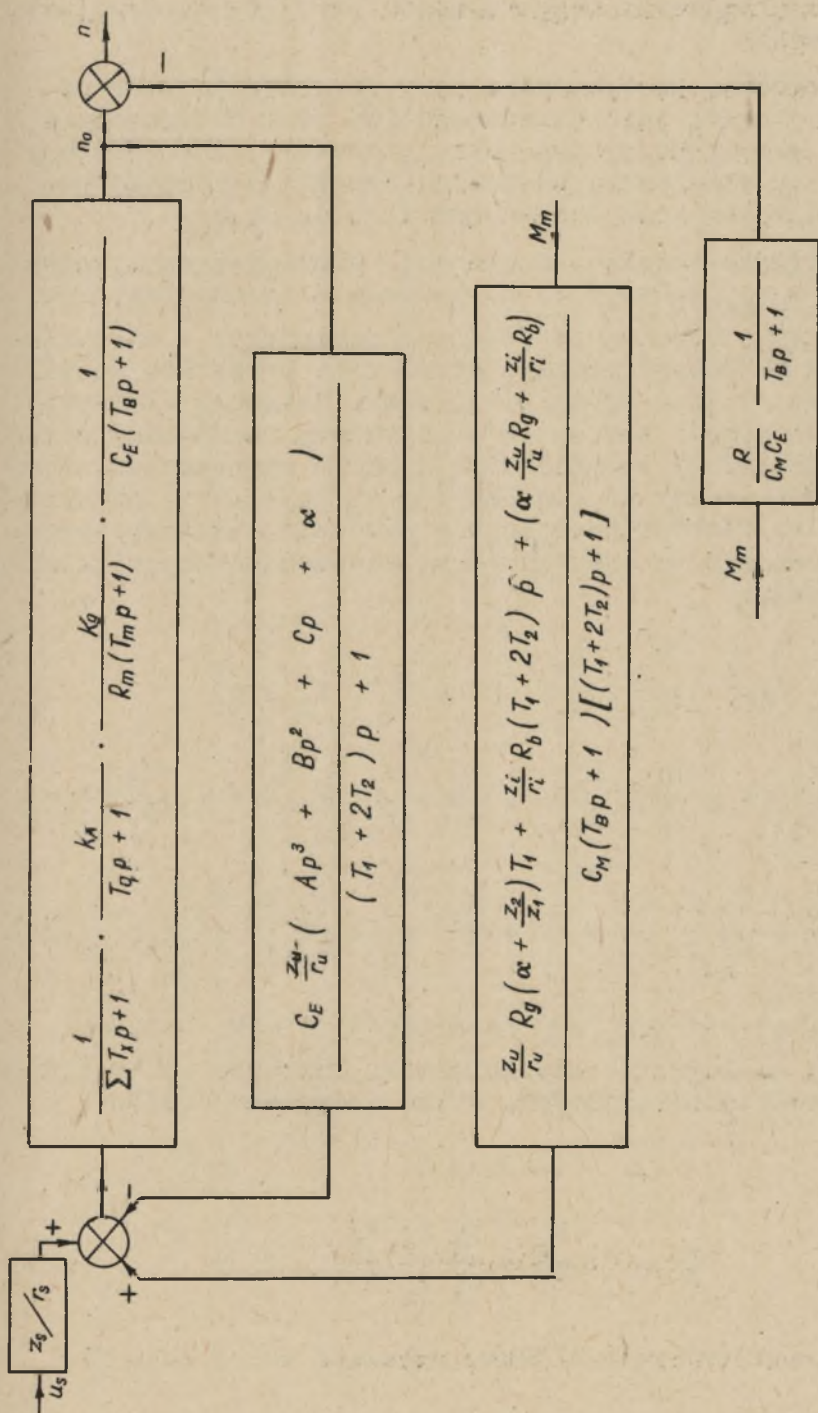 u_s
z_s / r_s
+
+
-
\frac{1}{\sum T_x p + 1} \cdot \frac{k_A}{T_q p + 1} \cdot \frac{K_g}{R_m (T_m p + 1)} \cdot \frac{1}{C_E (T_B p + 1)}
n_o
n
-
C_E \frac{z_u}{r_u} ( A p^3 + B p^2 + C p + \alpha )
(T_1 + 2T_2) p + 1
\frac{z_u}{r_u} R_g (\alpha + \frac{z_2}{z_1}) T_1 + \frac{z_i}{r_i} R_b (T_1 + 2T_2) p + (\alpha \frac{z_u}{r_u} R_g + \frac{z_i}{r_i} R_b)
C_M (T_B p + 1) [(T_1 + 2T_2) p + 1]
M_m
M_m
\frac{R}{C_M C_E} \frac{1}{T_B p + 1}